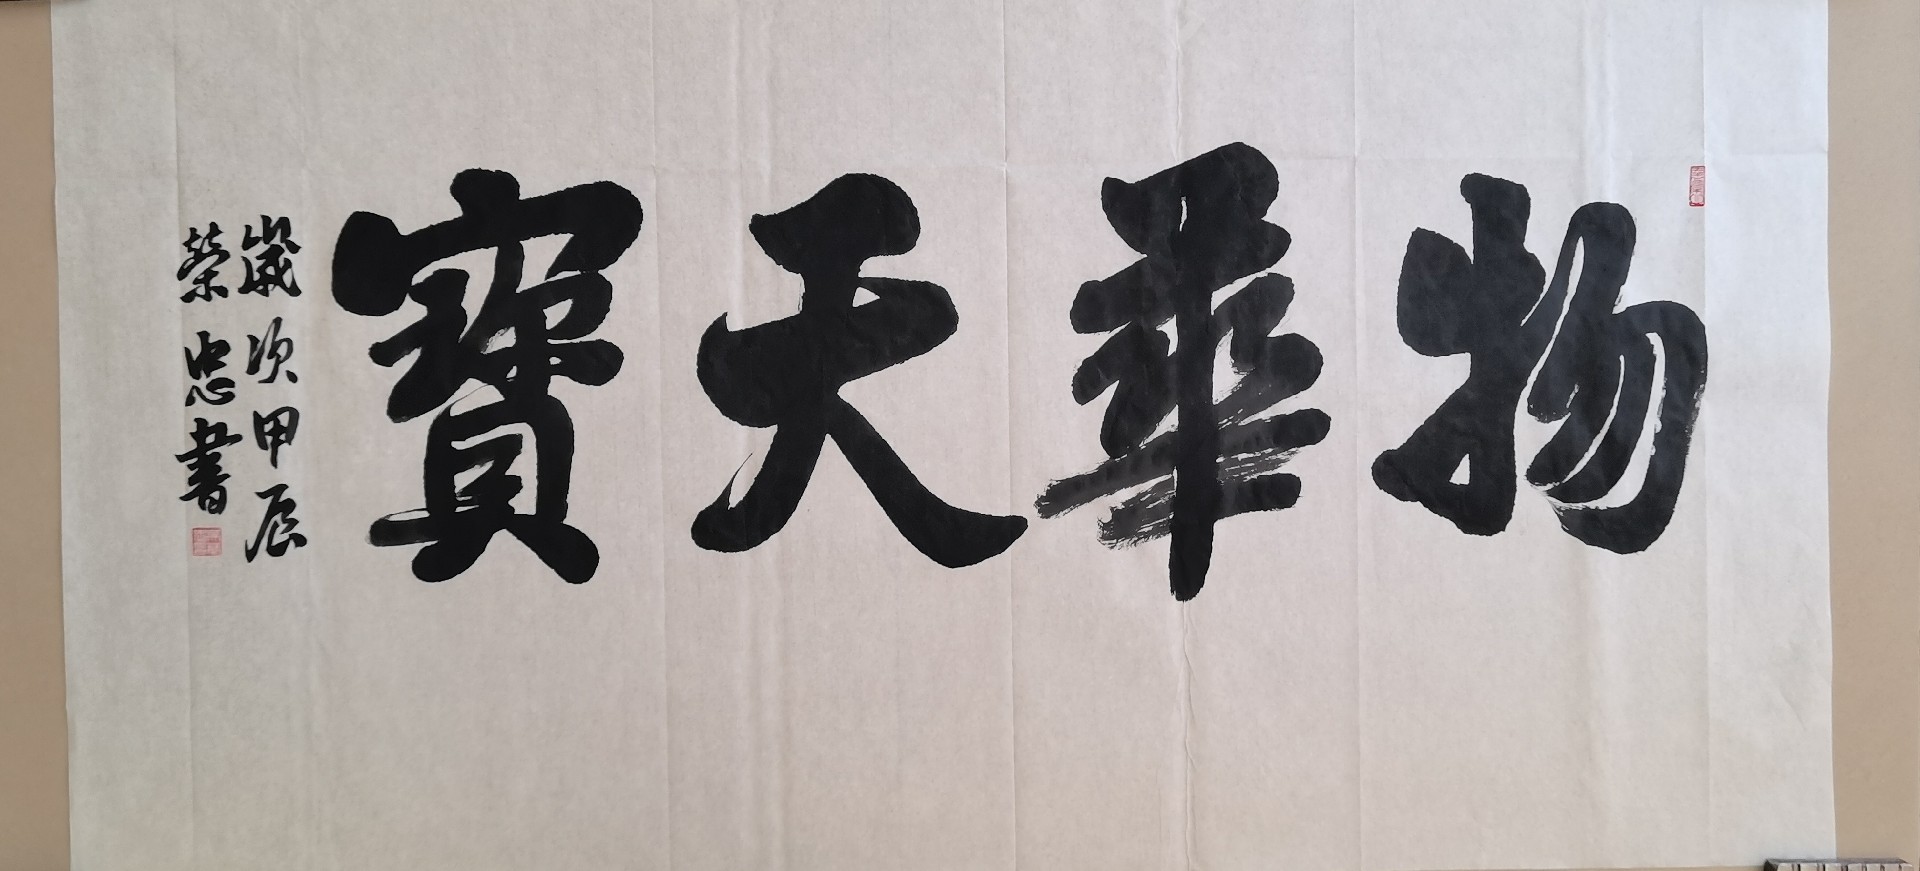 物華天寶
歲次甲辰
榮忠書